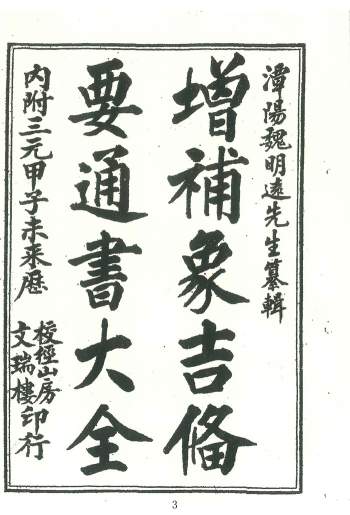 漳陽魏明遠先生纂輯
增補象吉俻
要通書大全
內附三元甲子未來曆
校經山房
文瑞樓印行
3